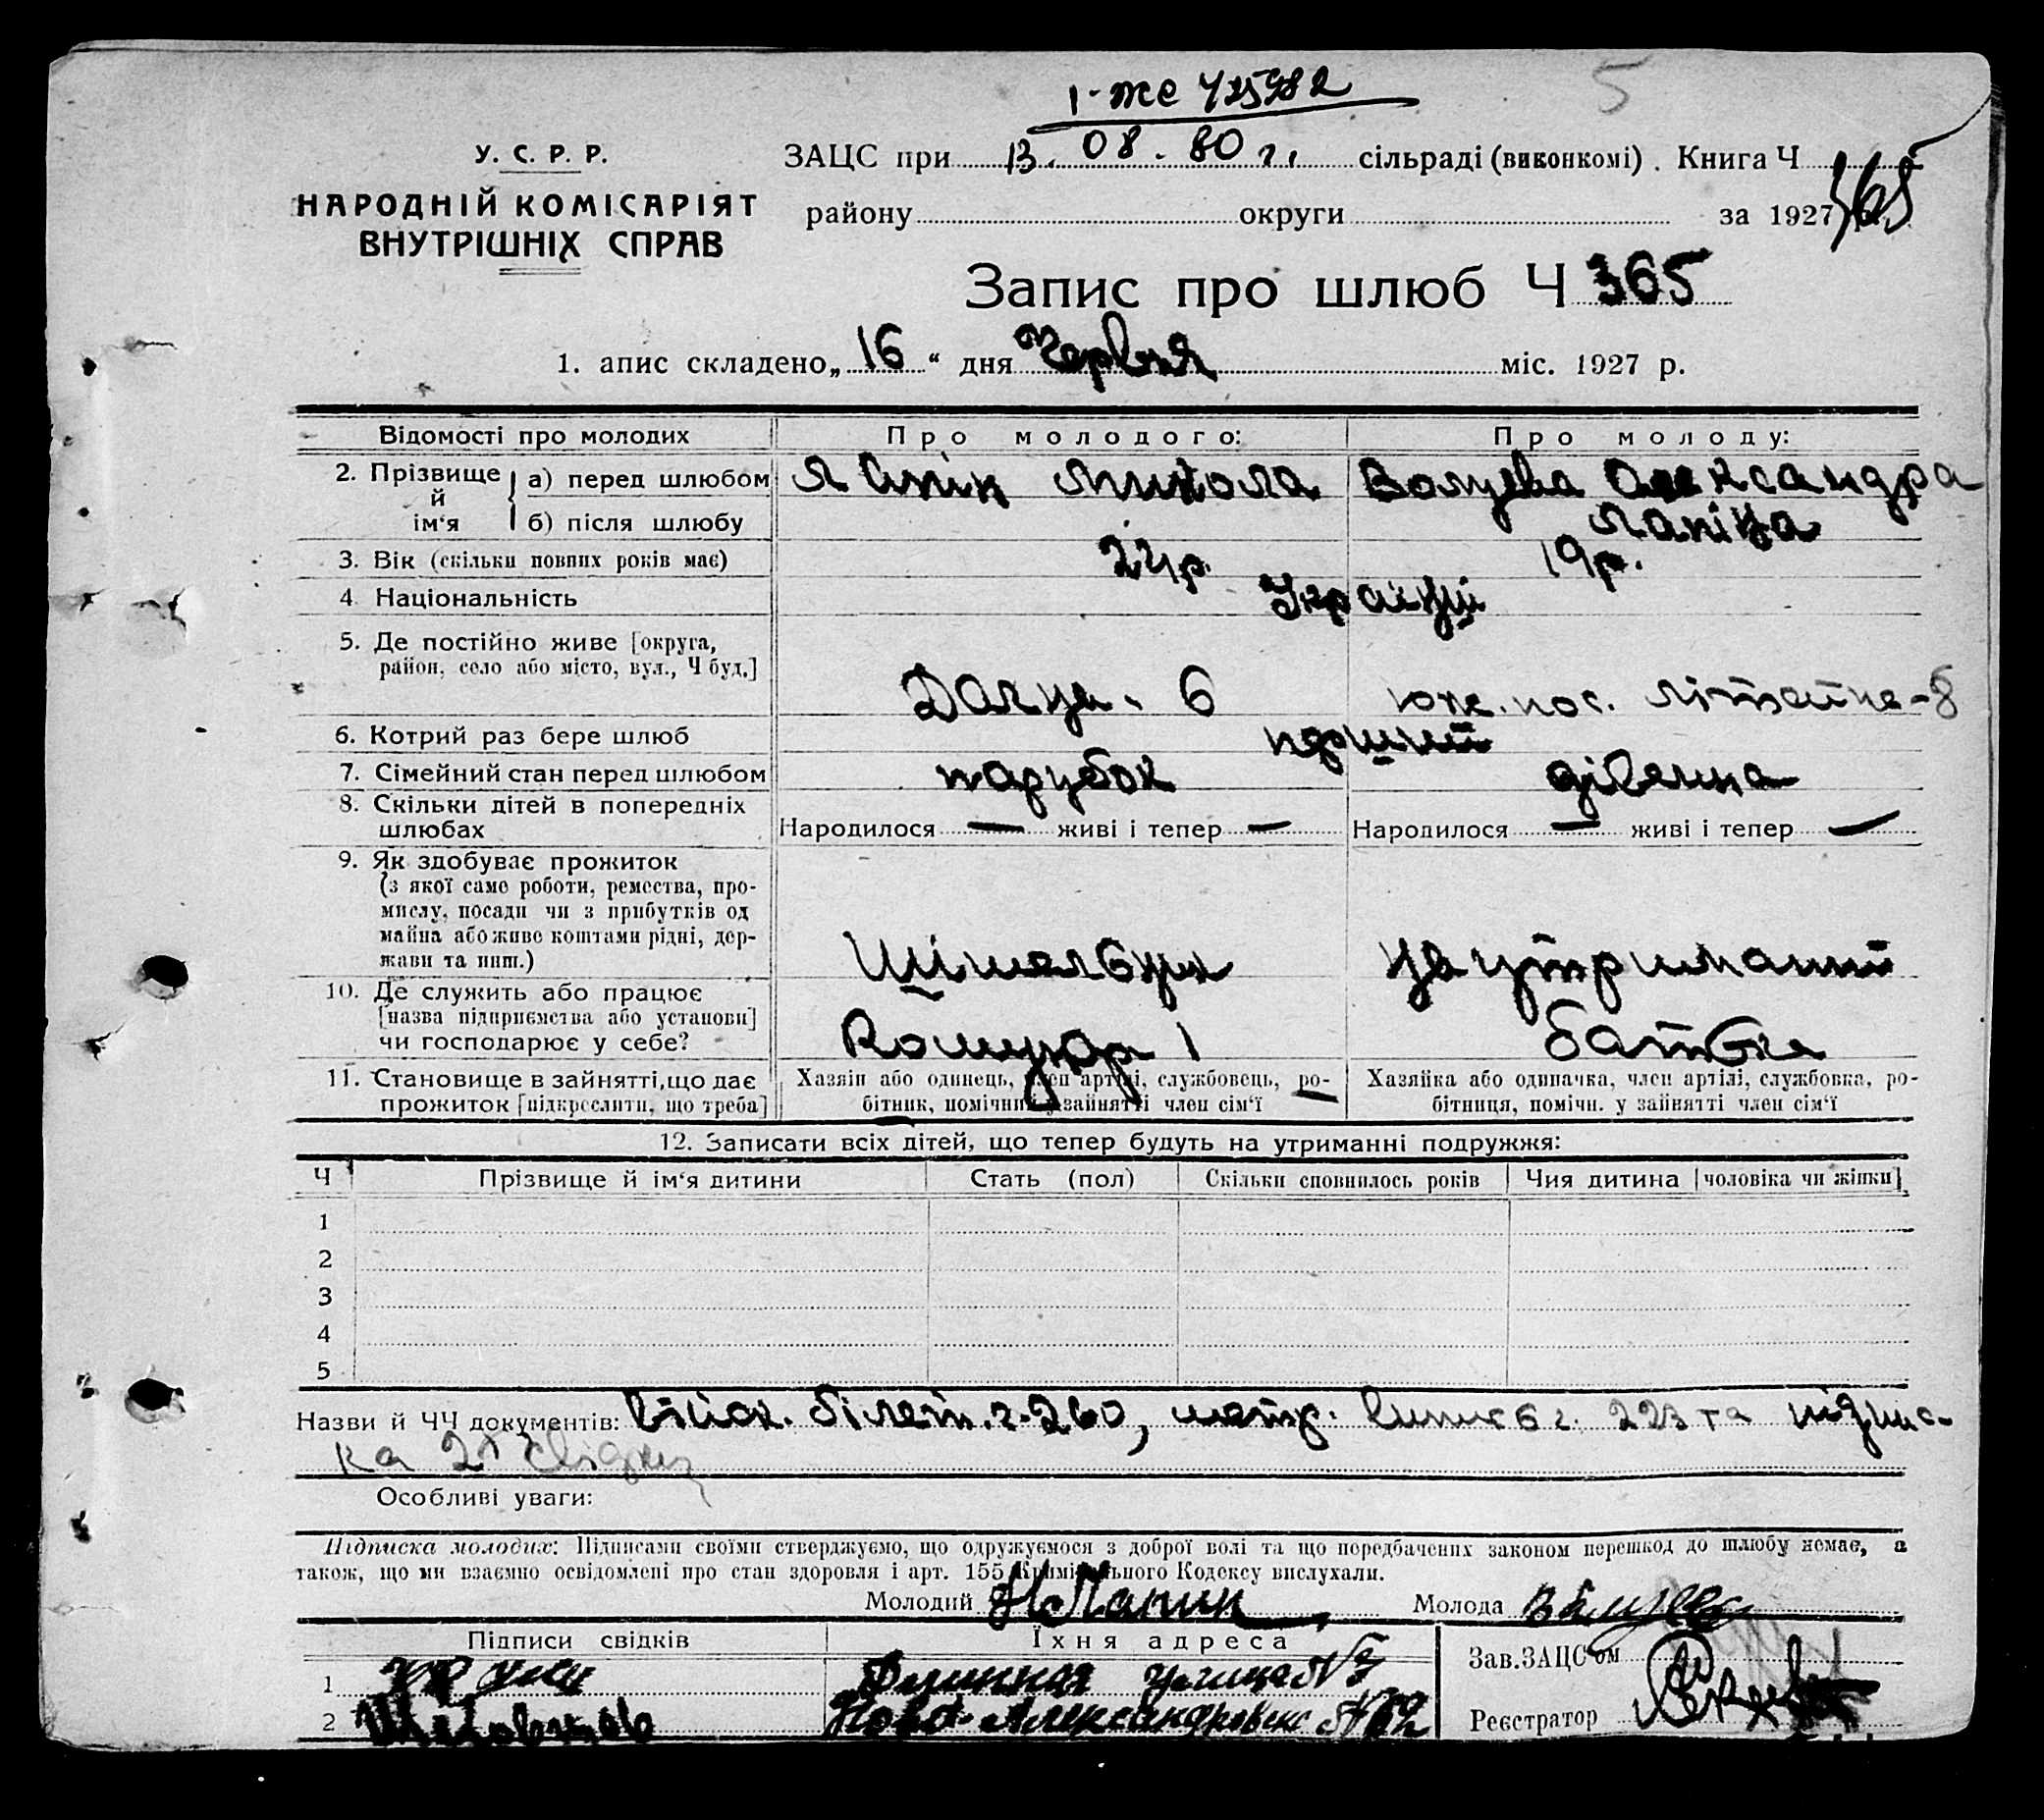 1-же 425982
5
У. С. Р. Р.
НАРОДНІЙ КОМІСАРІЯТ
ВНУТРІШНІХ СПРАВ
ЗАЦС при 13. 08. 80 г. сільраді (виконкомі). Книга Ч
району округи за 1927 365
Запис про шлюб Ч 365
1. апис складено „16“ дня Червня міс. 1927 р.
Відомості про молодих Про молодого: Про молоду:
2. Прізвище й ім‘я а) перед шлюбом Лапін Микола Волуева Олександра
б) після шлюбу Лапіна
3. Вік (скільки повних років має) 24р. 19р.
4. Національність Українці
5. Де постійно живе [округа,
район, село або місто, вул., Ч буд.] 6 Юже. пос. Літейна-8
6. Котрий раз бере шлюб перший
7. Сімейний стан перед шлюбом парубок дівчина
8. Скільки дітей в попередніх
шлюбах Народилося — живі і тепер — Народилося — живі і тепер —
9. Як здобуває прожиток
(з якої саме роботи, ремества, про-
мислу, посади чи з прибутків од
майна або живе коштами рідні, дер-
жави та инш.) на утриманні
10. Де служить або працює
[назва підприємства або установи]
чи господарює у себе? Комунар 1 батька
11. Становище в зайнятті, що дає
прожиток [підкреслити, що треба]
Хазяїн або одинець, член артілі, службовець, ро-
бітник, помічний у зайнятті член сім‘ї
Хазяйка або одиначка, член артілі, службовка, ро-
бітниця, помічн. у зайнятті член сім‘ї
12. Записати всіх дітей, що тепер будуть на утриманні подружжя:
Ч Прізвище й ім‘я дитини Стать (пол) Скільки сповнилось років Чия дитина [чоловіка чи жінки]
1
2
3
4
5
Назви й ЧЧ документів: Війск. білет. г. 260, метр. випись г. 223 та підпис-
ка 2х свідків
Особливі уваги:
Підписка молодих: Підписами своїми стверджуємо, що одружуємося з доброї волі та що передбачених законом перешкод до шлюбу немає, а
також, що ми взаємно освідомлені про стан здоровля і арт. 155 Кримінального Кодексу вислухали.
Молодий Н Лапин Молода Валуева
Підписи свідків Їхня адреса Зав. ЗАЦС‘ом
1 улица №
2 Ново-Александровск № 62 Реєстратор